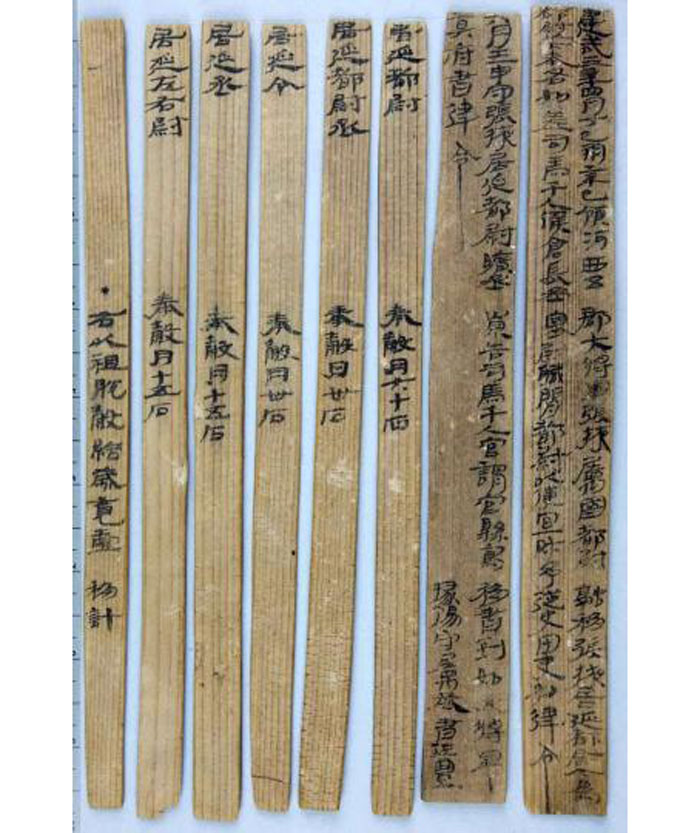 建武三年四月丁巳朔辛巳領河西五郡大將軍張掖屬國都尉融移張掖居延都尉今為
都尉以下奉各如差司馬千人候倉長丞塞尉職閒都尉以便宜財予從史田吏如律令
六月壬申守張掖居延都尉曠丞崇告司馬千人官謂官縣寫移書到如大將軍
莫府書律令 掾陽守屬恭書佐豐
居延都尉 奉穀月六十石
居延都尉丞 奉穀月卅石
居延令 奉穀月卅石
居延丞 奉穀月十五石
居延左右尉 奉穀月十五石
·右以祖脫穀給歲竟壹移計